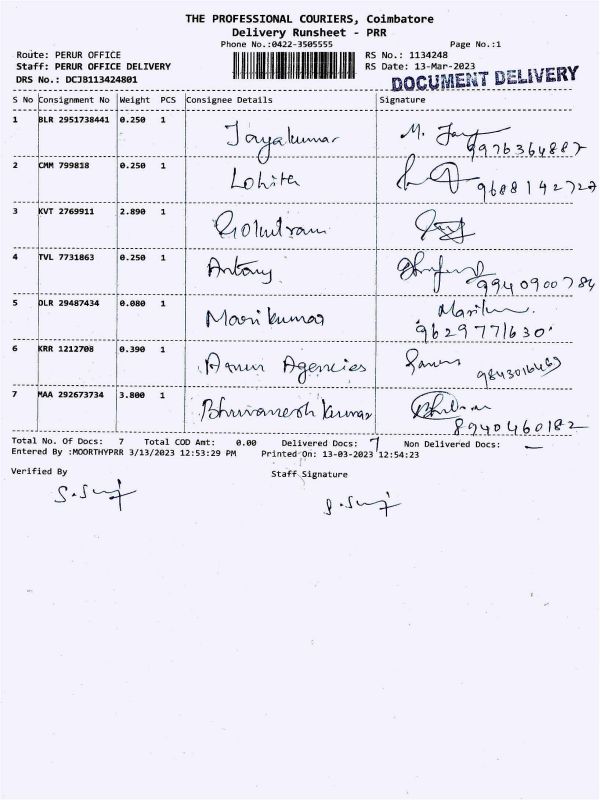 THE PROFESSIONAL COURIERS, Coimbatore
Delivery Runsheet - PRR
Phone No.:0422-3505555 Page No.:1
Route: PERUR OFFICE RS No.: 1134248
Staff: PERUR OFFICE DELIVERY RS Date: 13-Mar-2023
DRS No.: DCJB113424801 DOCUMENT DELIVERY
S No Consignment No Weight PCS Consignee Details Signature
1 BLR 2951738441 0.250 1 Jayakumar M. Jay
9976364887
2 CMM 799818 0.250 1 Lohita 9688142727
3 KVT 2769911 2.890 1 Gokulram
4 TVL 7731863 0.250 1 Antony
9940900784
5 DLR 29487434 0.080 1 Marikumar
9629771630
6 KRR 1212708 0.390 1 Agencies
9843016463
7 MAA 292673734 3.800 1 Bhuvanesh Kumar
8940460182
Total No. Of Docs: 7 Total COD Amt: 0.00 Delivered Docs: 7 Non Delivered Docs: —
Entered By :MOORTHYPRR 3/13/2023 12:53:29 PM Printed On: 13-03-2023 12:54:23
Verified By Staff Signature